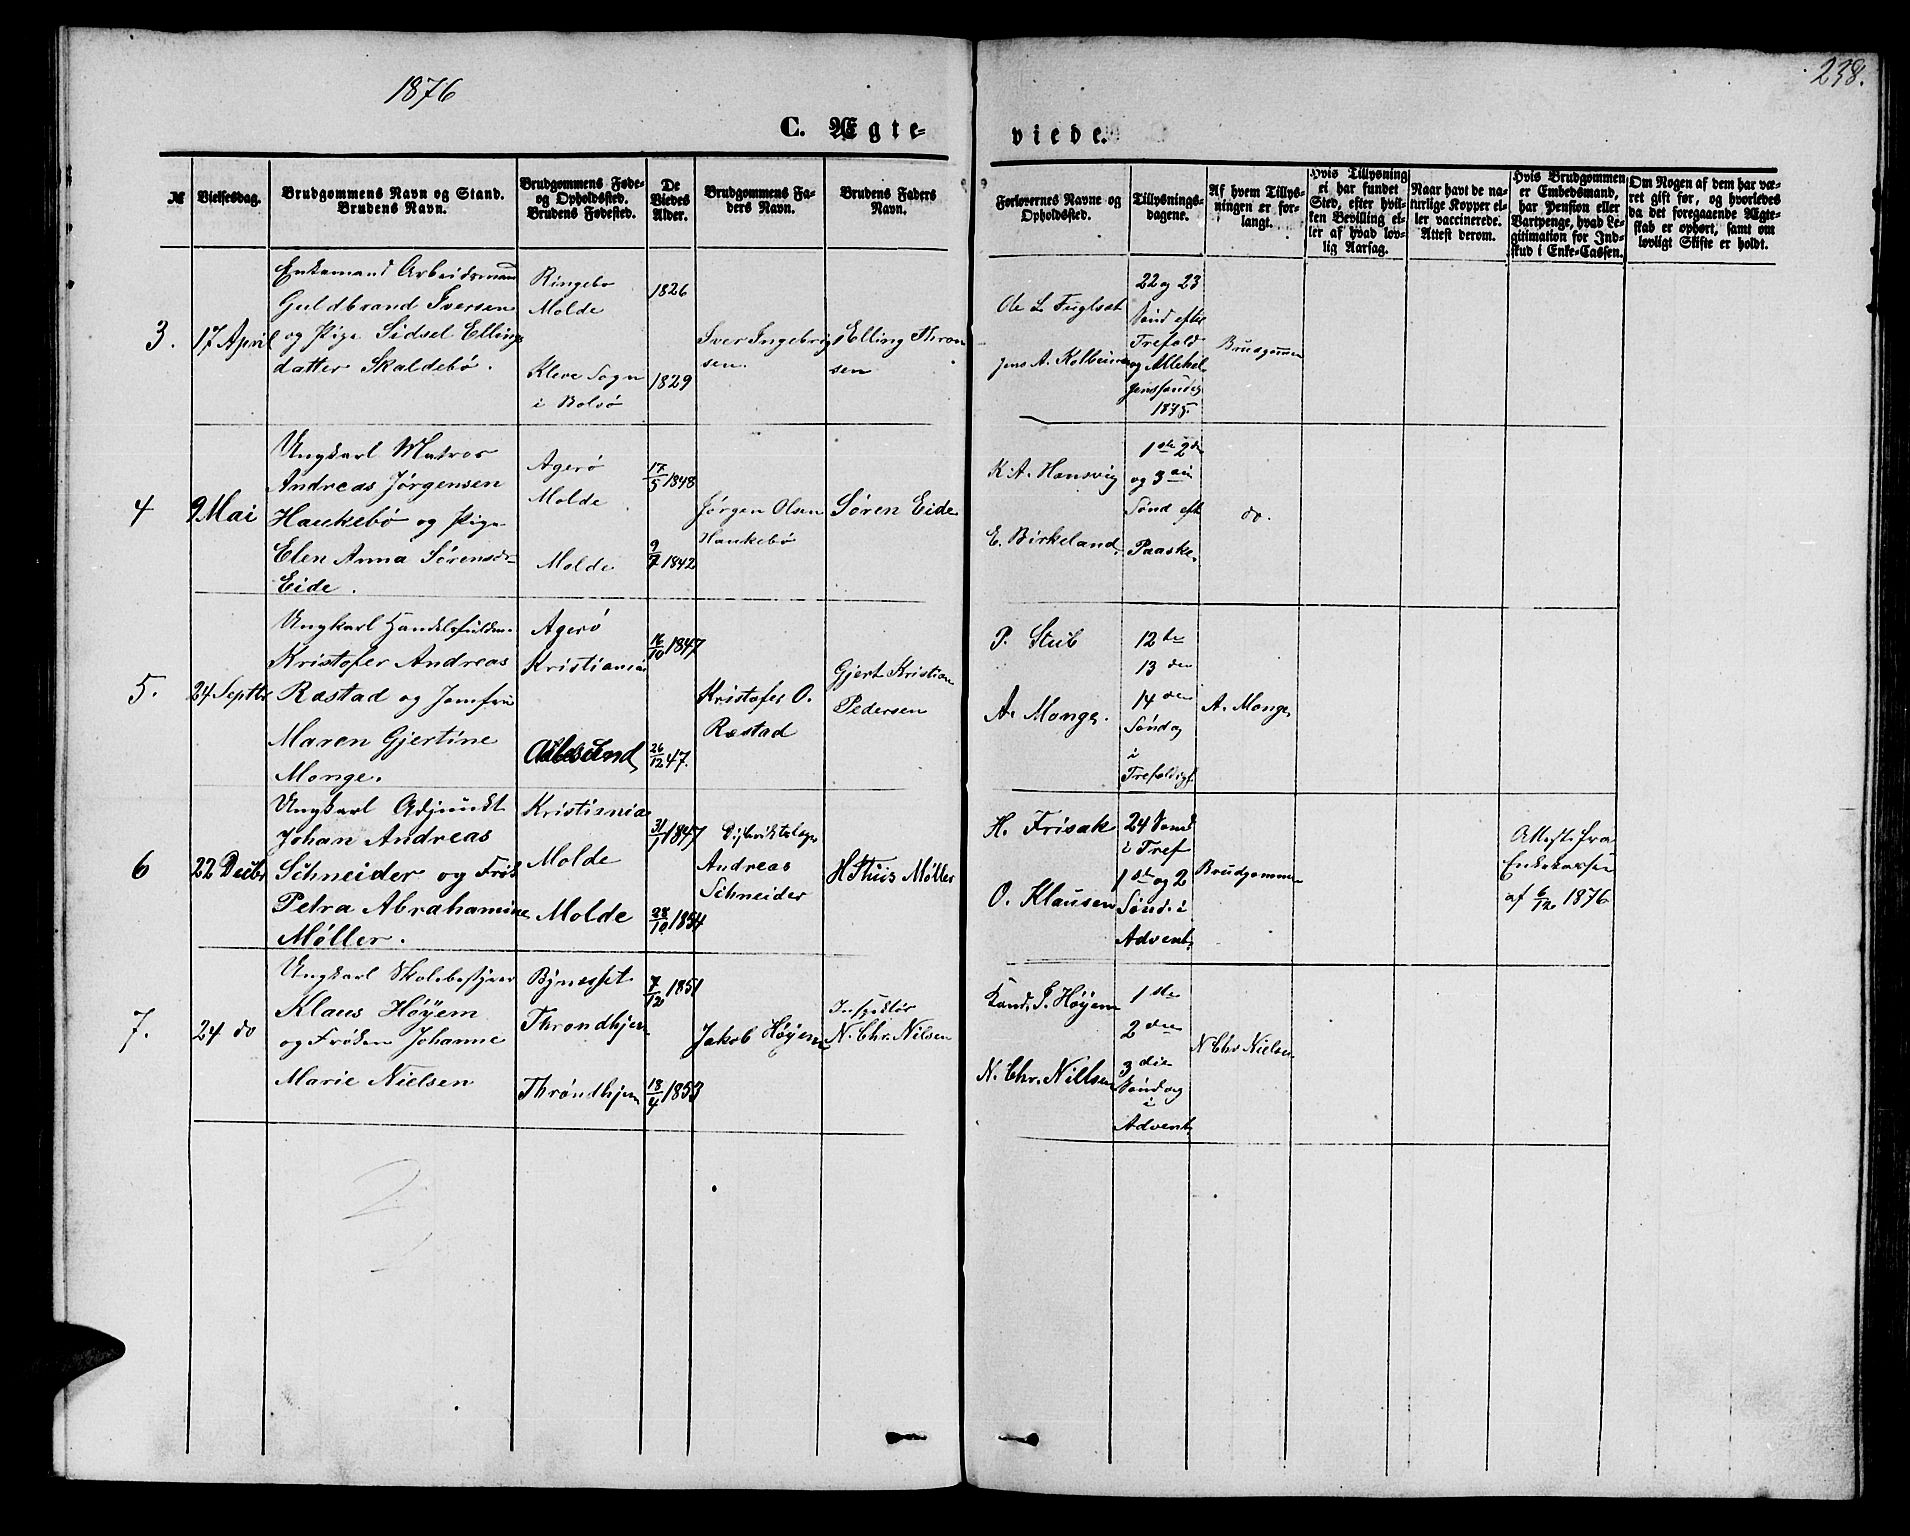 1876
238.
C. Ægte-
viede.
№
Vielsesdag.
Brudgommens Navn og Stand.
Brudens Navn.
Brudgommens Føde-
og Opholdssted.
Brudens Fødested.
De
Viedes
Alder.
Brudgommens Fa-
ders Navn.
Brudens Faders
Navn.
Forlovernes Navne og
Opholdssted.
Tillysnings-
dagene.
Af hvem Tillys-
ningen er for-
langt.
Hvis Tillysning
ei har fundet
Sted, efter hvil-
ken Bevilling el-
ler af hvad lov-
lig Aarsag.
Naar havt de na-
turlige Kopper el-
ler vaccinerede.
Attest derom.
Hvis Brudgommen
er Embedsmand,
har Pension eller
Vartpenge, hvad Le-
gitimation for Ind-
skud i Enke-Cassen.
Om Nogen af dem har væ-
ret gift før, og hvorledes
da det foregaaende Ægte-
skab er ophørt, samt om
lovligt Skifte er holdt.
3.
17 April
Enkemand Arbeidsmand
Guldbrand Iversen
og Pige Sidsel Ellings
datter Skaldebø.
Ringebo
Molde
Kleve Sogn
i Bolsø
1826
1829
Iver Ingebrigt
sen.
Elling Thron
sen
Ole L. Fuglset
Jens A. Kolbeinsen
22 og 23
Sønd efter
Trefold
og Allehel
genssøndag
1875.
Brudgommen
4
9 Mai
Ungkarl Matros
Andreas Jørgensen
Haukebø og Pige
Elen Anna Sørensdr
Eide.
Agerø
Molde
Molde
17/5 1848
9/7 1842
Jørgen Olsen
Haukebø
Søren Eide
K. A. Hansvig
E. Birkeland.
1ste 2den
og 3die
Sønd eft
Paaske.
do.
5.
24 Septbr
Ungkarl Handelsfuldm.
Kristofer Andreas
Ræstad og Jomfru
Maren Gjertine
Monge.
Agerø
Kristiania
Aalesund
16/10 1847
26/12 47.
Kristofer O.
Ræstad
Gjert Kristian
Pedersen
P. Stub
A. Monge.
12te
13den
14den
Søndag
i
Trefoldigh.
A. Monge
6
22 Decbr
Ungkarl Adjunkt
Johan Andreas
Schneider og Frøk
Petra Abrahamine
Møller.
Kristiania
Molde
Molde
31/1 1847
28/10 1854
Distriktslæge
Andreas
Schneider
H Thiis Møller
H. Frisak
O. Klausen
24 Sønd
i Tref
1ste og 2
Sønd. i
Advent.
Brudgommen
Attest fra
Enkekassen
af 6/12 1876
7.
24 do
Ungkarl Skolebestyrer
Klaus Höyem
og Frøken Johanne
Marie Nielsen
Bynesset
Throndhjem
Throndhjem
7/12 1851
18/4 1853
Jakob Höyem
Inspektør
N. Chr. Nilsen
Kand. S. Höyem
N. Chr. Nillsen
1ste
2den
3die
Søndag
i
Advent.
N Chr Nielsen
2